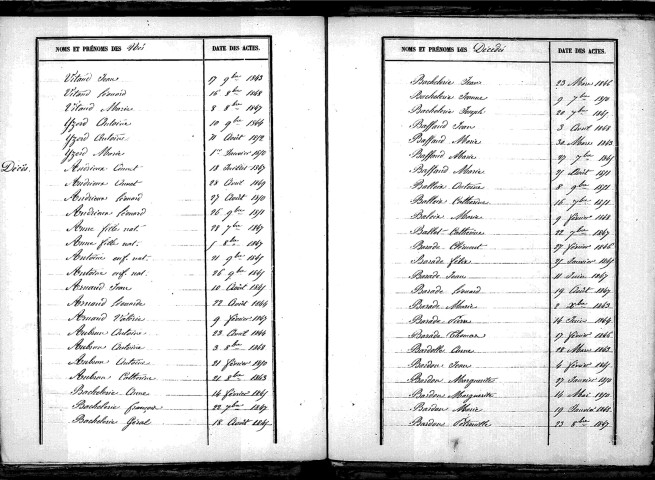 NOMS ET PRÉNOMS DES Nés DATE DES ACTES.
Vitaud Jean 17 9bre 1863
Vitaud Léonard 16 8bre 1868
Vitaud Marie 8 8bre 1867
Yzord Antoine 10 9bre 1864
Yzord Antoine 31 Août 1872
Yzord Marie 1er Janvier 1870
Décès.
Andrieux Annet 18 Juillet 1867
Andrieux Annet 28 Août 1869
Andrieux Léonard 27 Août 1870
Andrieux Léonard 26 9bre 1871
Anne fille nat. 28 7bre 1867
Anne fille nat. 1867
Antoine enf. nat. 21 9bre 1865
Antoine enf. nat. 26 9bre 1865
Arnaud Jean 10 Août 1861
Arnaud Léonide 22 Août 1864
Arnaud Valérie 9 Février 1867
Aubrun Antoine 23 Août 1864
Aubrun Antoine 3 8bre 1868
Aubrun Antoine 21 Février 1870
Aubrun Catherine 21 8bre 1863
Bachelerie Anne 14 Février 1865
Bachelerie François 22 7bre 1867
Bachelerie Géral 18 Août 1865
NOMS ET PRÉNOMS DES Décédés DATE DES ACTES.
Bachelerie Jean 23 Mars 1866
Bachelerie Jeanne 9 7bre 1870
Bachelerie Joseph 20 7bre 1865
Baffaud Jean 3 Août 1868
Baffaud Marie 30 Mars 1863
Baffaud Marie 27 7bre 1865
Baffaud Marie 21 Août 1871
Antoine 8 9bre 1871
Catherine 16 7bre 1871
Marie 9 Février 1868
Ballet Catherine 22 7bre 1867
Barade Clément 27 Février 1866
Barade Félix 21 Janvier 1865
Barade Jean 11 Juin 1867
Barade Léonard 19 Août 1867
Barade Marie 2 Xbre 1863
Barade Pierre 14 Juin 1864
Barade Thomas 17 Février 1866
Bardelle Anne 28 Mars 1863
Bardon Jean 4 Février 1865
Bardon Marguerite 27 Janvier 1870
Bardon Marguerite 14 Mai 1870
Bardon Marie 19 Janvier 1868
Bardon Pétronille 23 8bre 1867